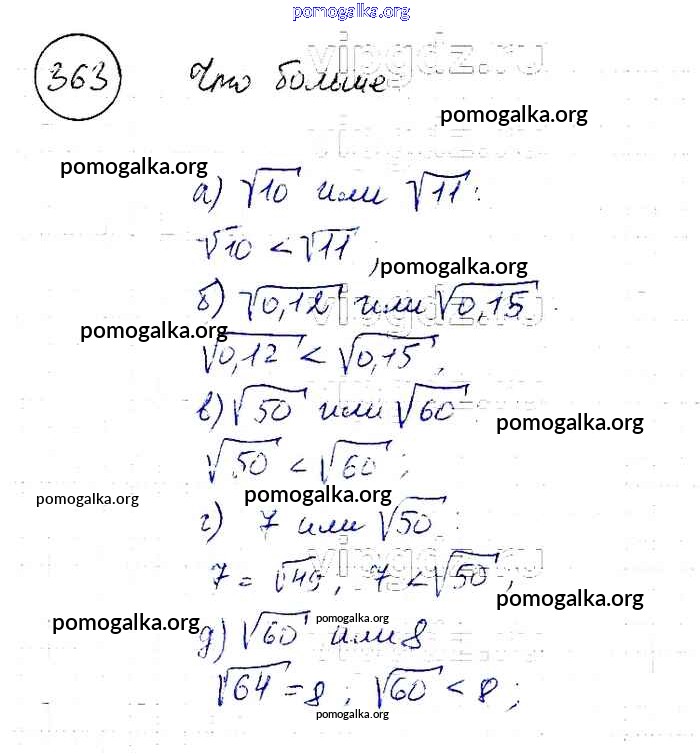 pomogalka.org
vipgdz.ru
363 Что больше
pomogalka.org
pomogalka.org
а) √10 или √11:
√10 < √11
pomogalka.org
б) √0,12 или √0,15
vipgdz.ru
pomogalka.org
√0,12 < √0,15,
в) √50 или √60
pomogalka.org
√50 < √60;
pomogalka.org
pomogalka.org
г) 7 или √50:
vipgdz.ru
7 = √49, 7 < √50;
pomogalka.org
pomogalka.org
pomogalka.org
д) √60 или 8
√64 = 8; √60 < 8;
pomogalka.org